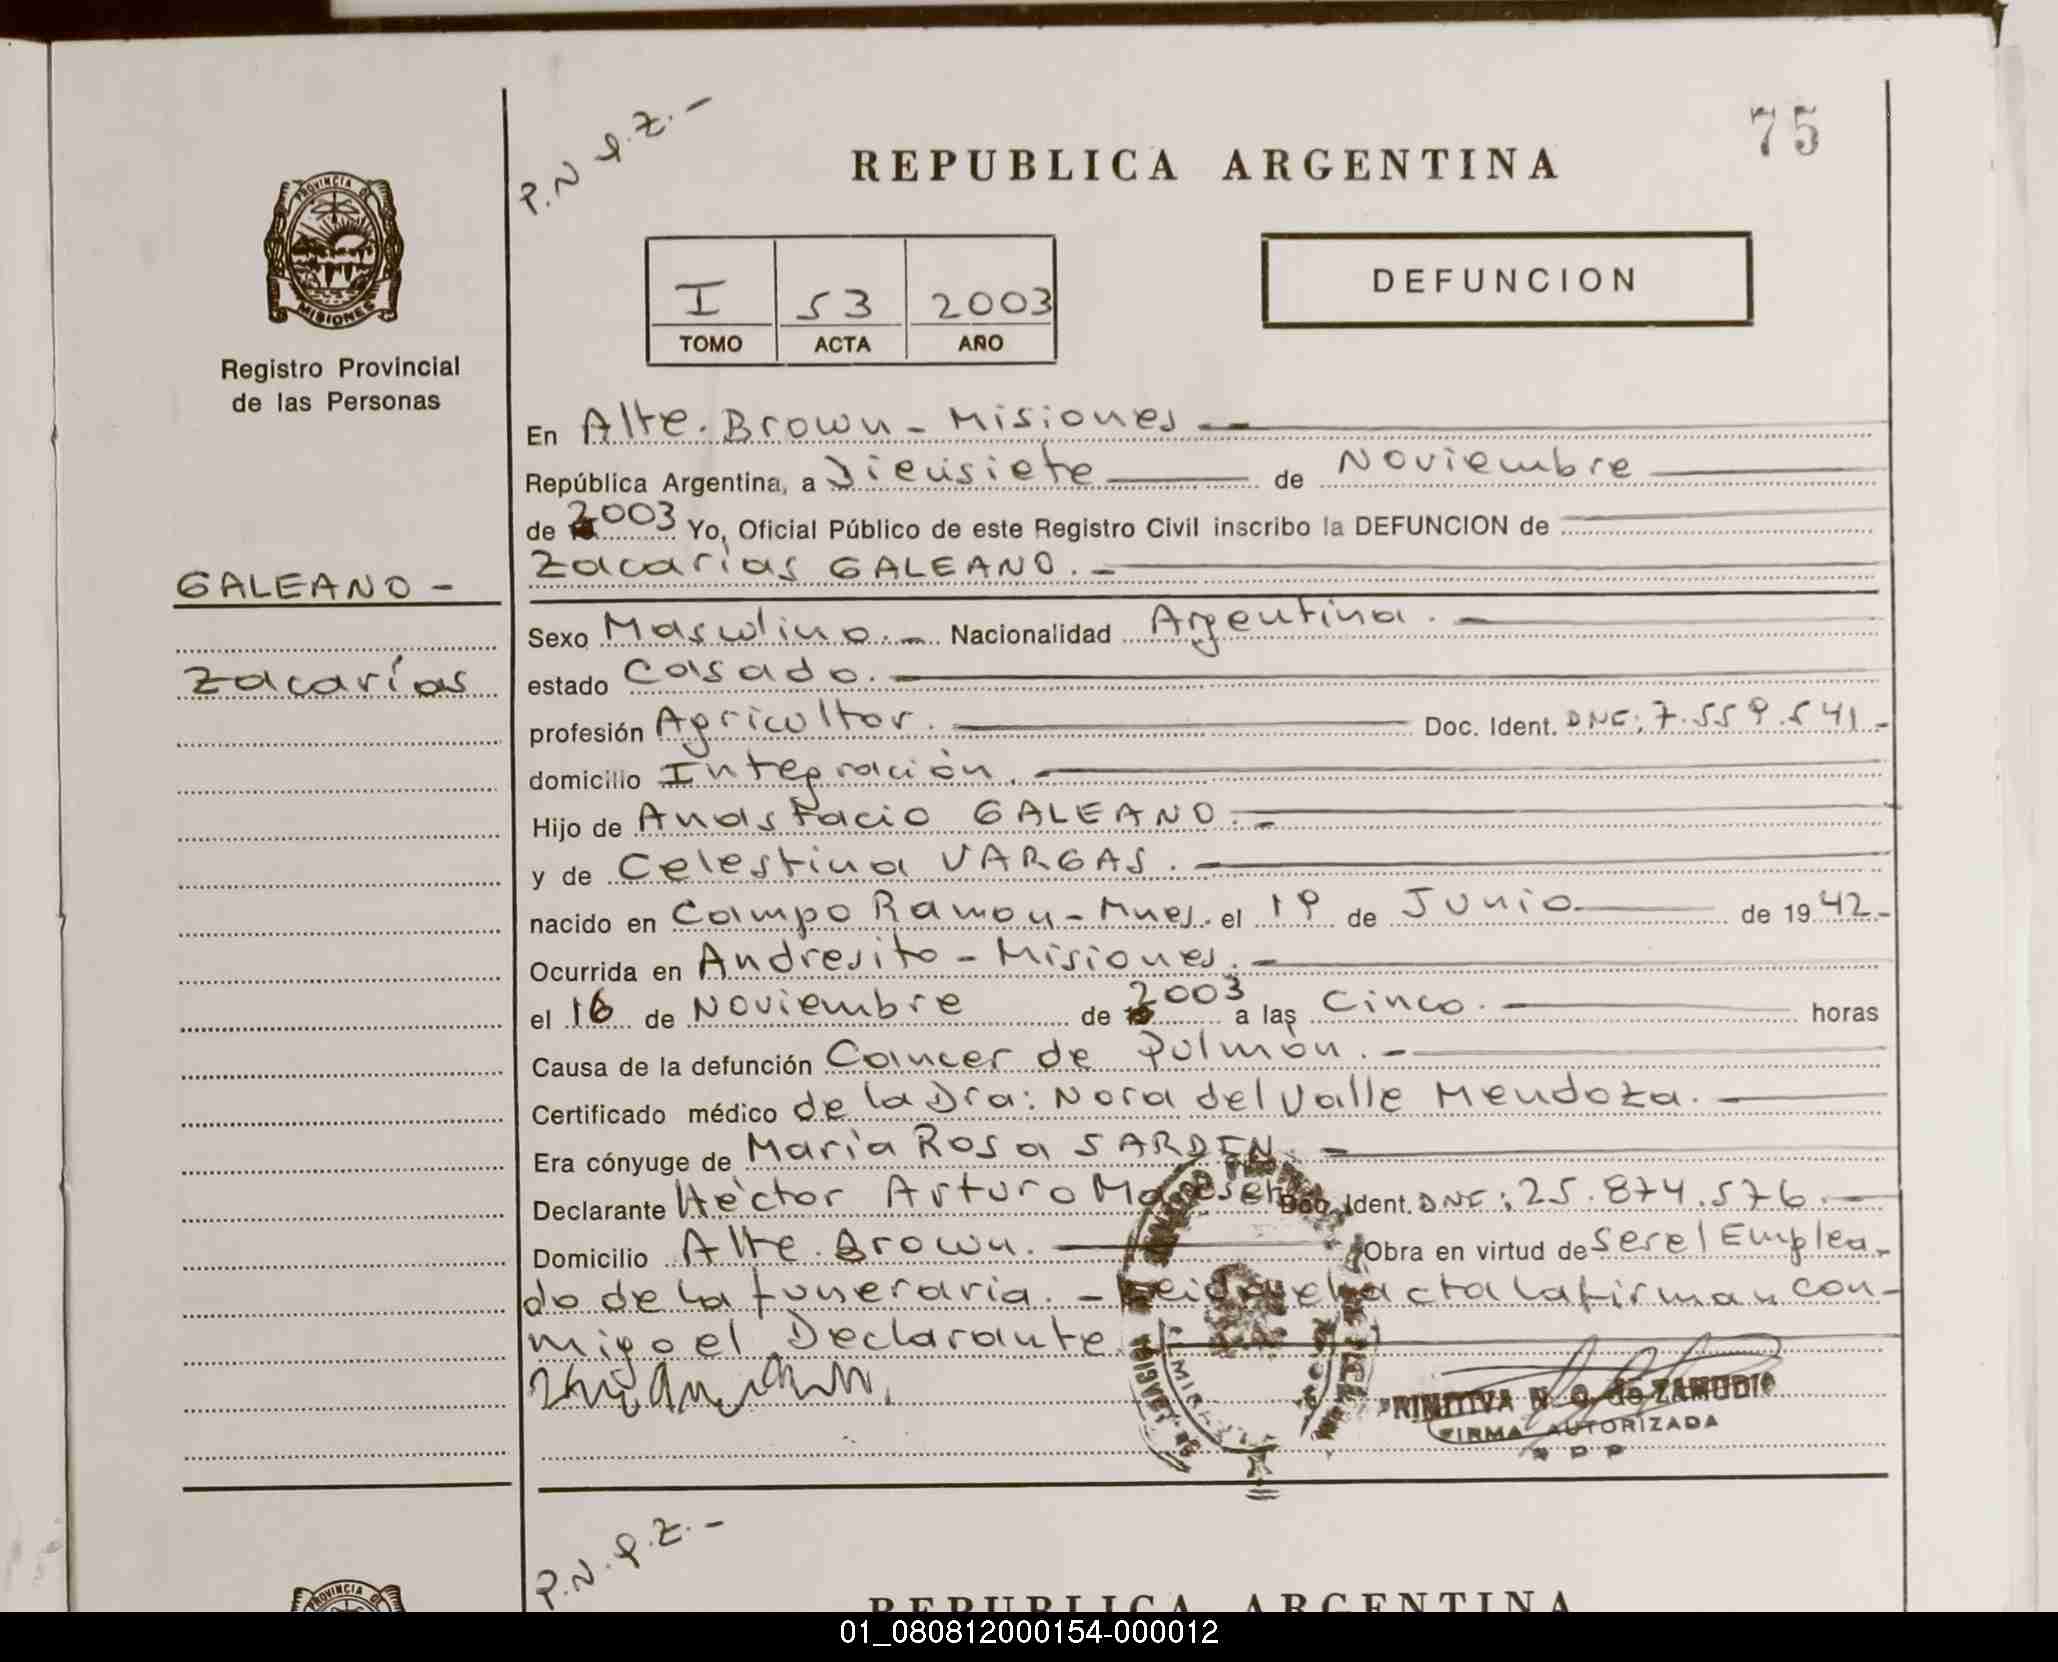 P.N Q.Z.-
75
REPUBLICA ARGENTINA
PROVINCIA DE
MISIONES
Registro Provincial
de las Personas
I 53 2003
TOMO ACTA AÑO
DEFUNCION
En Alte. Brown - Misiones
República Argentina, a Diecisiete de Noviembre
de 2003 Yo, Oficial Público de este Registro Civil inscribo la DEFUNCION de
GALEANO -
Zacarías GALEANO. -
Sexo Masculino. - Nacionalidad Argentina.
Zacarías
estado Casado.
profesión Agricultor. Doc. Ident. DNI: 7.559.541.-
domicilio Integración.
Hijo de Anastacio GALEANO. -
y de Celestina VARGAS.
nacido en Campo Ramon - Mnes. el 19 de Junio de 1942.-
Ocurrida en Andresito - Misiones. -
el 16 de Noviembre de 2003 a las Cinco. horas
Causa de la defunción Cancer de Pulmón. -
Certificado médico de la Dra: Nora del Valle Mendoza.
Era cónyuge de María Rosa SARDEN
Declarante Héctor Arturo Doc. Ident. DNI: 25.874.576.
Domicilio Alte. Brown. Obra en virtud de ser el Emplea-
do de la funeraria. - Leida el acta la firman con-
migo el Declarante
N. G. de ZAMUDIO
FIRMA AUTORIZADA
R D P
P.N. Q.Z.-
PROVINCIA DE
REPUBLICA ARGENTINA
01_080812000154-000012